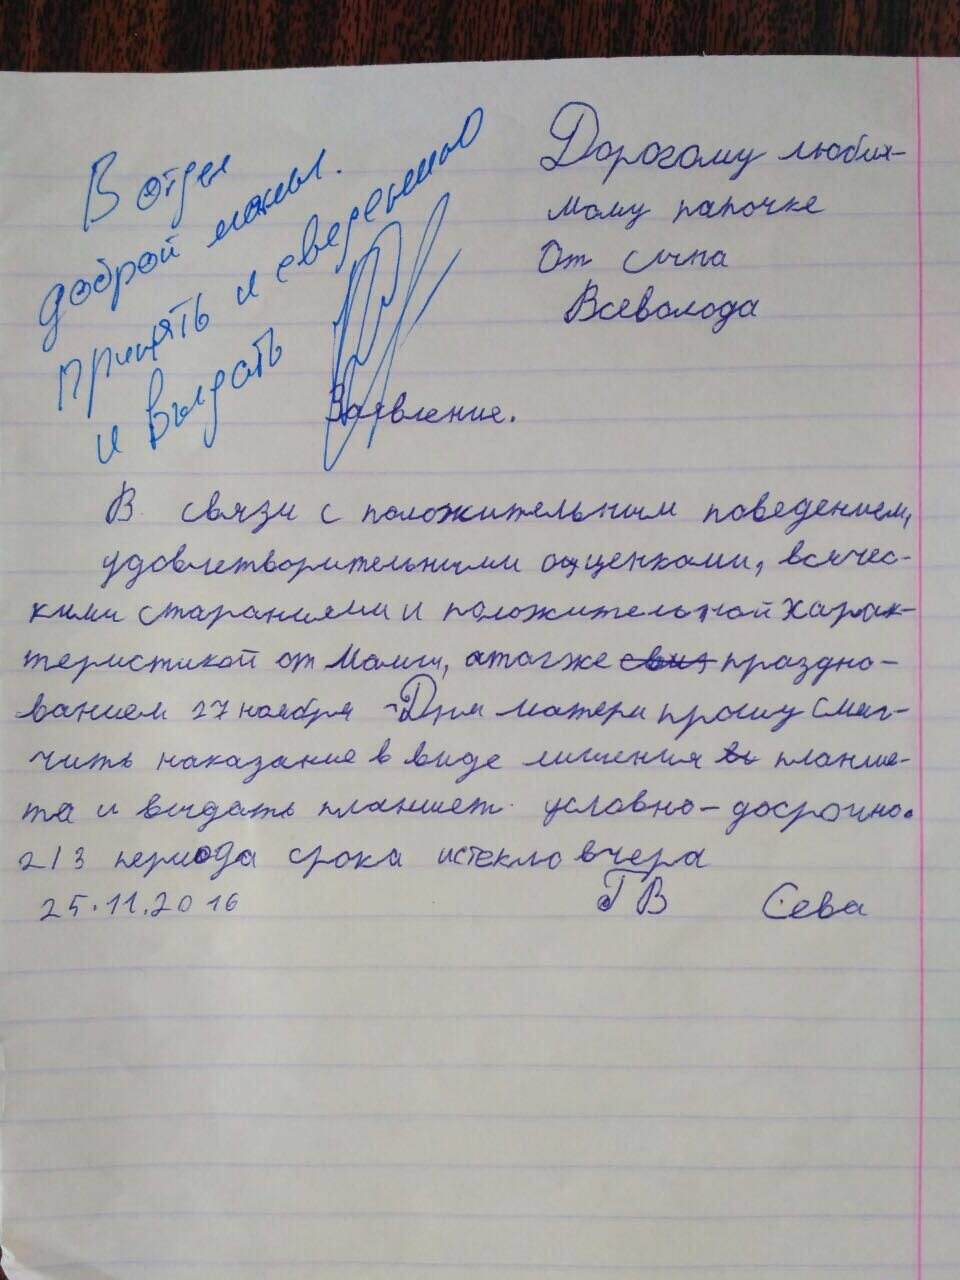 В отдел
доброй мамы.
принять к сведению
и выдать
Дорогому любия-
мому папочке
От сына
Всеволода
Заявление.
В связи с положительным поведением,
удовлетворительными оценками, всячес-
кими стараниями и положительной харак-
теристикой от Мамы, а также праздно-
ванием 27 ноября - Дня матери прошу смяг-
чить наказание в виде лишения планше-
та и выдать планшет условно-досрочно.
2/3 периода срока истекло вчера
25.11.2016 ГВ Сева